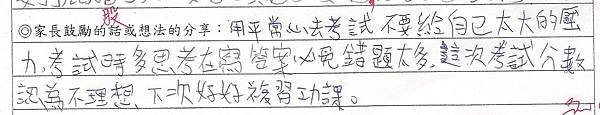 般
◎家長鼓勵的話或想法的分享：用平常心去考試 不要給自己太大的壓
力,考試時多思考在寫答案以免錯題太多,這次考試分數
認為不理想,下次好好複習功課。